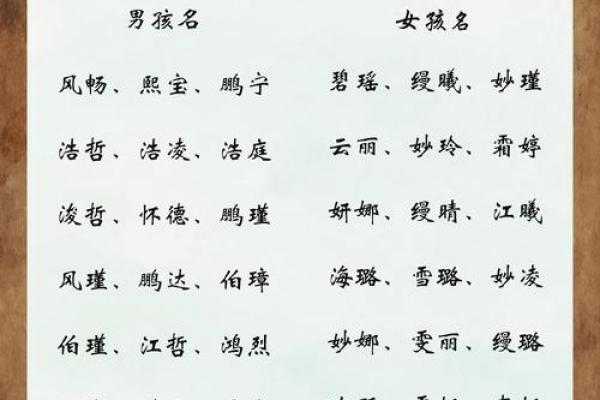 男孩名 女孩名
风畅、熙宝、鹏宁 碧瑶、缦曦、妙瑾
浩哲、浩凌、浩庭 云丽、妙玲、霜婷
浚哲、怀德、鹏瑾 妍娜、缦晴、江曦
风瑾、鹏达、伯璋 海璐、雪璐、妙凌
伯瑾、江哲、鸿烈 妙娜、雯丽、缦璐